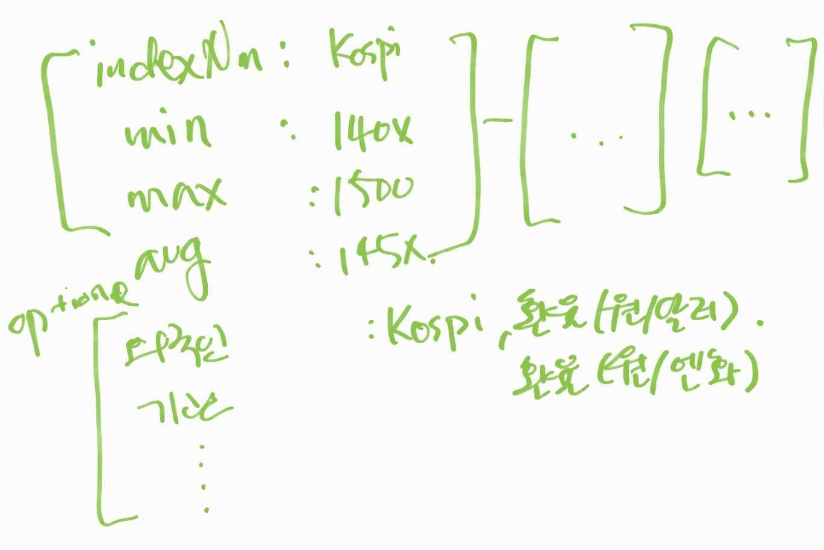 indexNm : Kospi
min : 140x
max : 1500
avg : 145x.
optional
: Kospi, 환율(원/달러).
환율(원/엔화)
기관